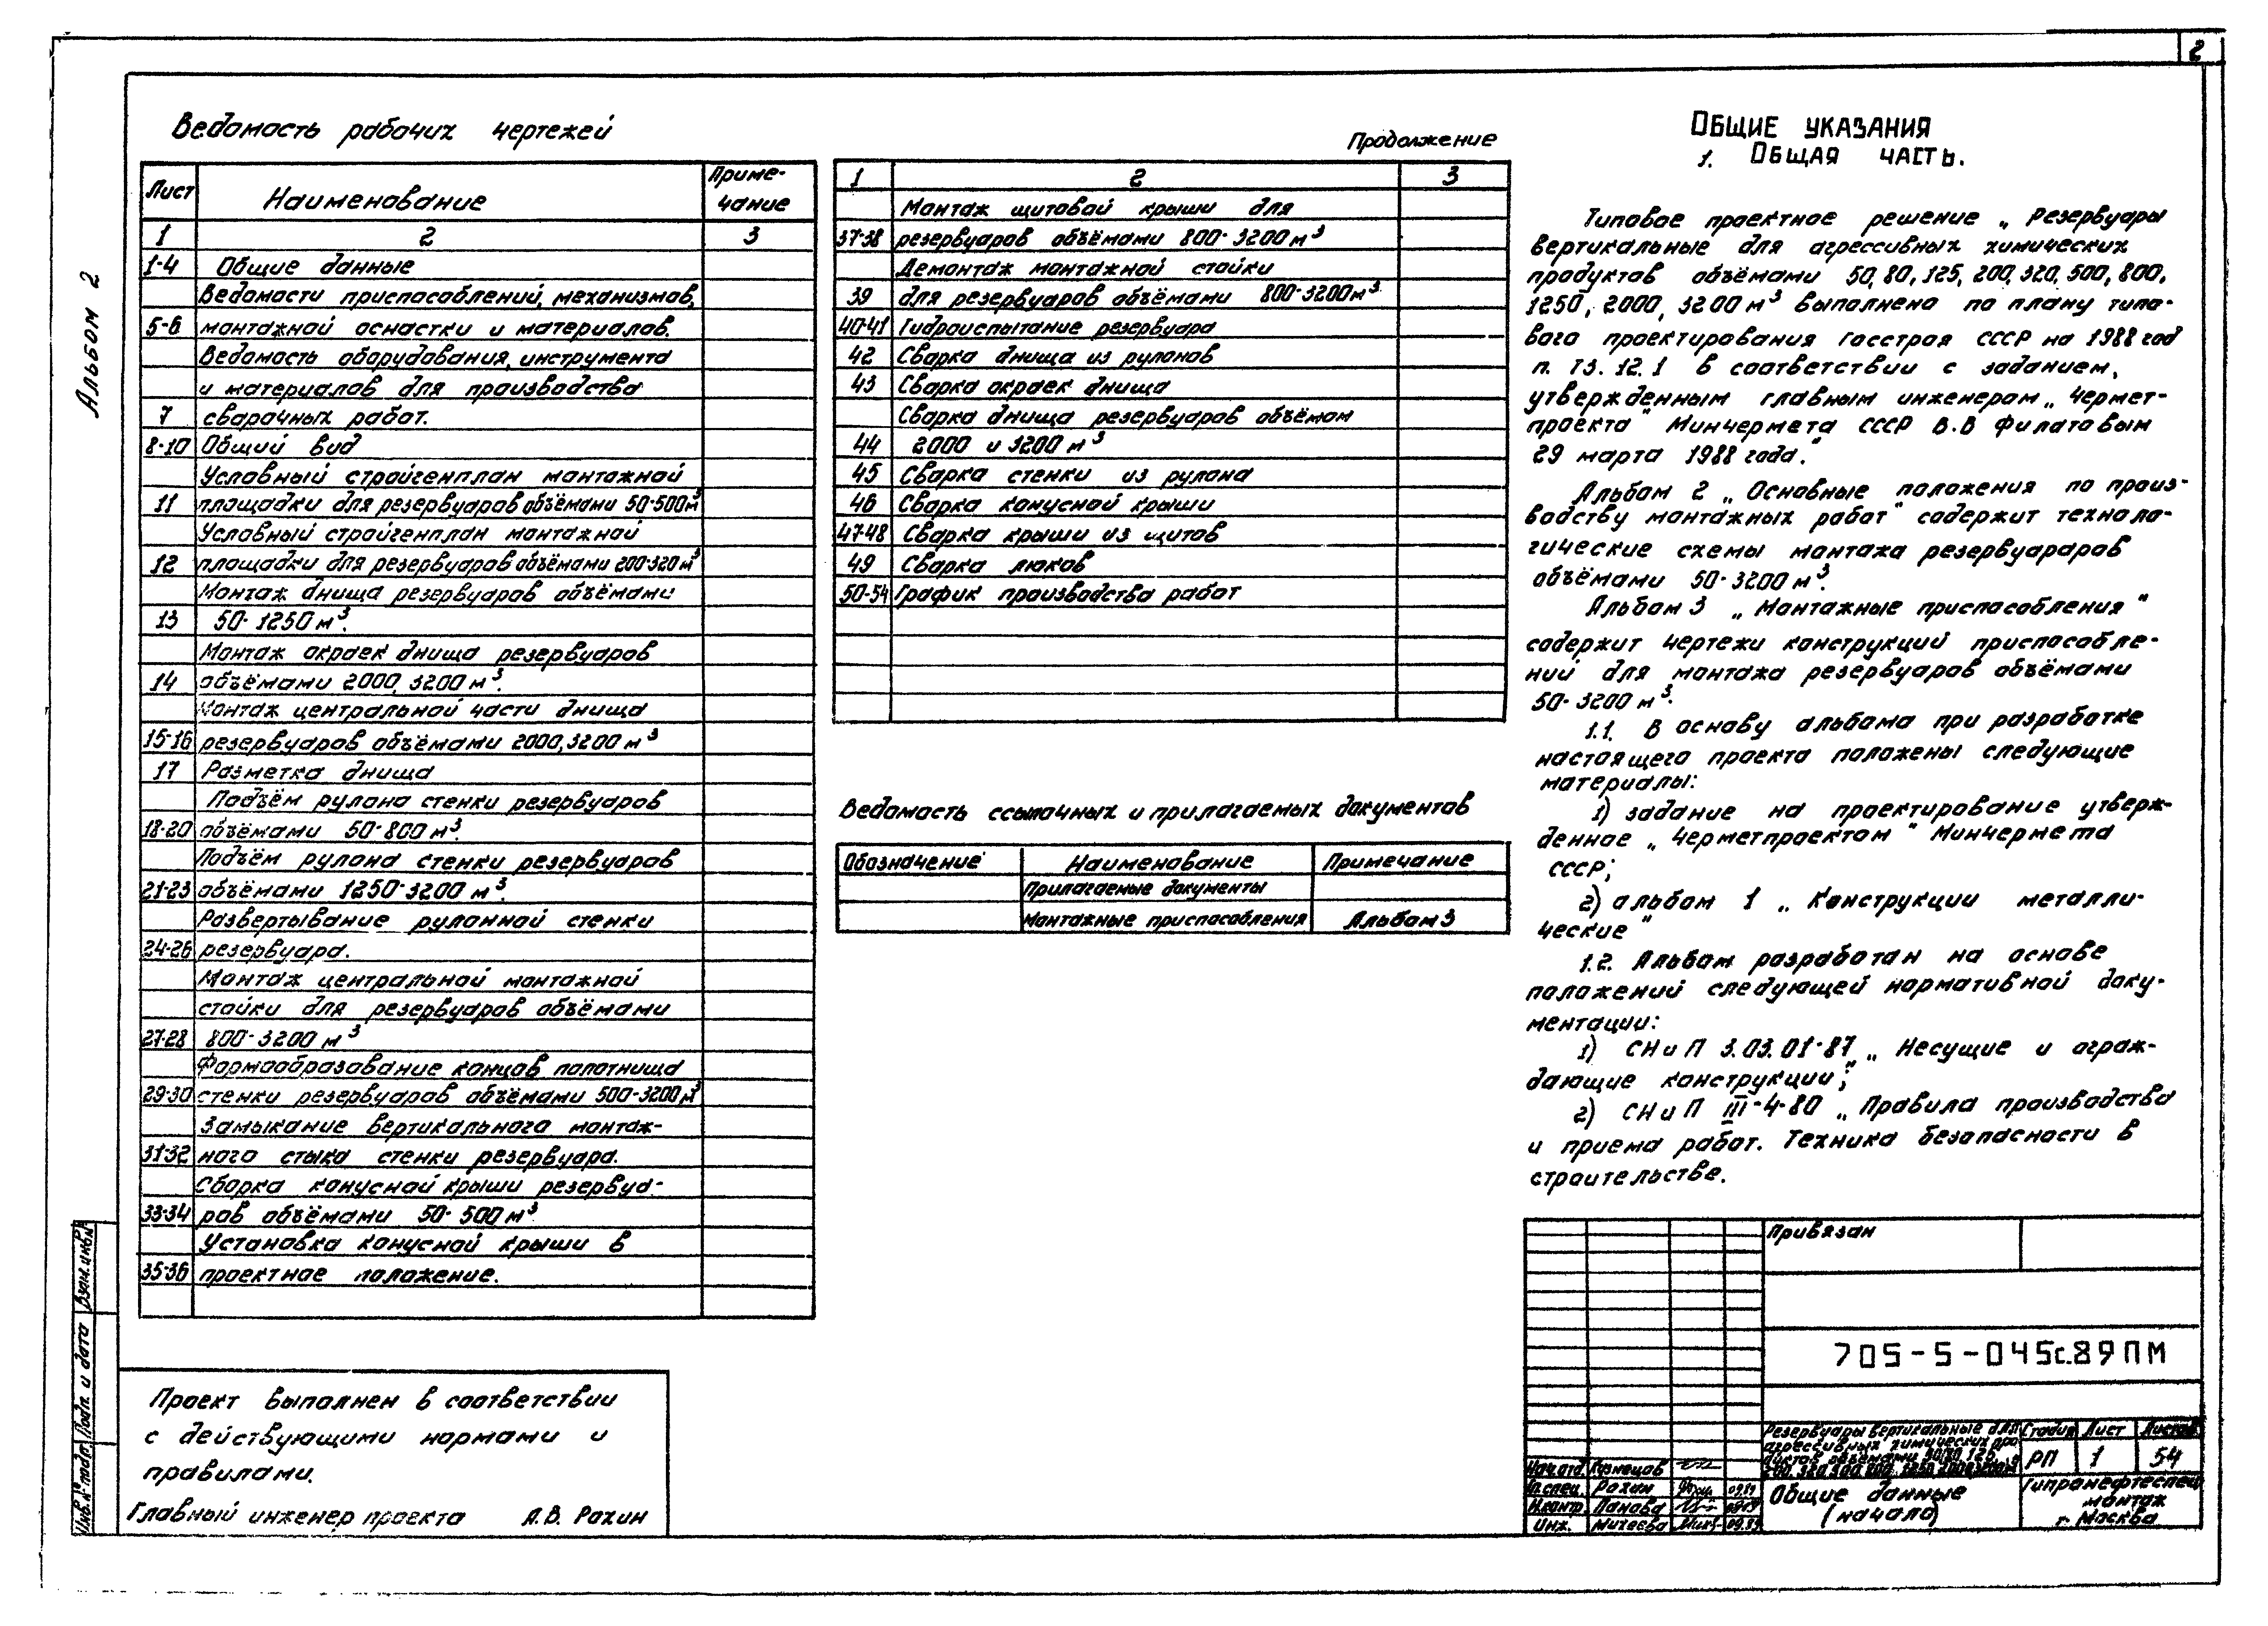 2
Альбом 2
Ведомость рабочих чертежей
Лист Наименование Приме-
чание
1 2 3
1-4 Общие данные
Ведомости приспособлений, механизмов,
5-6 монтажной оснастки и материалов.
Ведомость оборудования, инструмента
и материалов для производства
7 сварочных работ.
8-10 Общий вид
Условный стройгенплан монтажной
11 площадки для резервуаров объёмами 50-500м³
Условный стройгенплан монтажной
12 площадки для резервуаров объёмами 200-320м³
Монтаж днища резервуаров объёмами
13 50-1250м³.
Монтаж окраек днища резервуаров
14 объёмами 2000, 3200м³.
Монтаж центральной части днища
15-16 резервуаров объёмами 2000, 3200м³
17 Разметка днища
Подъём рулона стенки резервуаров
18-20 объёмами 50-800м³.
Подъём рулона стенки резервуаров
21-23 объёмами 1250-3200м³.
Развертывание рулонной стенки
24-26 резервуара.
Монтаж центральной монтажной
стойки для резервуаров объёмами
27-28 800-3200м³
Формообразование концов полотнища
29-30 стенки резервуаров объёмами 500-3200м³
Замыкание вертикального монтаж-
31-32 ного стыка стенки резервуара.
Сборка конусной крыши резервуа-
33-34 ров объёмами 50-500м³
Установка конусной крыши в
35-36 проектное положение.
Продолжение
1 2 3
Монтаж щитовой крыши для
37-38 резервуаров объёмами 800-3200м³
Демонтаж монтажной стойки
39 для резервуаров объёмами 800-3200м³.
40-41 Гидроиспытание резервуара
42 Сварка днища из рулонов
43 Сварка окраек днища
Сварка днища резервуаров объёмом
44 2000 и 3200м³
45 Сварка стенки из рулона
46 Сварка конусной крыши
47-48 Сварка крыши из щитов
49 Сварка люков
50-54 График производства работ
Ведомость ссылочных и прилагаемых документов
Обозначение Наименование Примечание
Прилагаемые документы
Монтажные приспособления Альбом 3
Общие указания
1. Общая часть.
Типовое проектное решение „Резервуары
вертикальные для агрессивных химических
продуктов объёмами 50, 80, 125, 200, 320, 500, 800,
1250, 2000, 3200м³ выполнено по плану типо-
вого проектирования Госстроя СССР на 1988 год
п. Т3.12.1 в соответствии с заданием,
утвержденным главным инженером „Чермет-
проекта" Минчермета СССР В.В Филатовым
29 марта 1988 года."
Альбом 2 „Основные положения по произ-
водству монтажных работ" содержит техноло-
гические схемы монтажа резервуараров
объёмами 50-3200м³.
Альбом 3 „Монтажные приспособления"
содержит чертежи конструкций приспособле-
ний для монтажа резервуаров объёмами
50-3200м³.
1.1. В основу альбома при разработке
настоящего проекта положены следующие
материалы:
1) задание на проектирование утверж-
денное „Черметпроектом" Минчермета
СССР;
2) альбом 1 „Конструкции металли-
ческие"
1.2. Альбом разработан на основе
положений следующей нормативной доку-
ментации:
1) СНиП 3.03.01-87 „Несущие и ограж-
дающие конструкции";
2) СНиП III-4-80 „Правила производства
и приема работ. Техника безопасности в
строительстве.
Проект выполнен в соответствии
с действующими нормами и
правилами.
Главный инженер проекта А.В. Рохин
Инв.№ подл. Подп. и дата Взам.инв.№
Привязан
705-5-045с.89ПМ
Резервуары вертикальные для
агрессивных химических про-
дуктов объёмами 50, 80, 125,
200, 320, 500, 800, 1250, 2000, 3200м³
Стадия Лист Листов
РП 1 54
Общие данные
(начало)
Гипронефтеспец
монтаж
г. Москва
Нач.отд. Кузнецов
Гл.спец. Рохин 09.89
Н.контр. Панова 09.89
Инж. Михеева 09.89